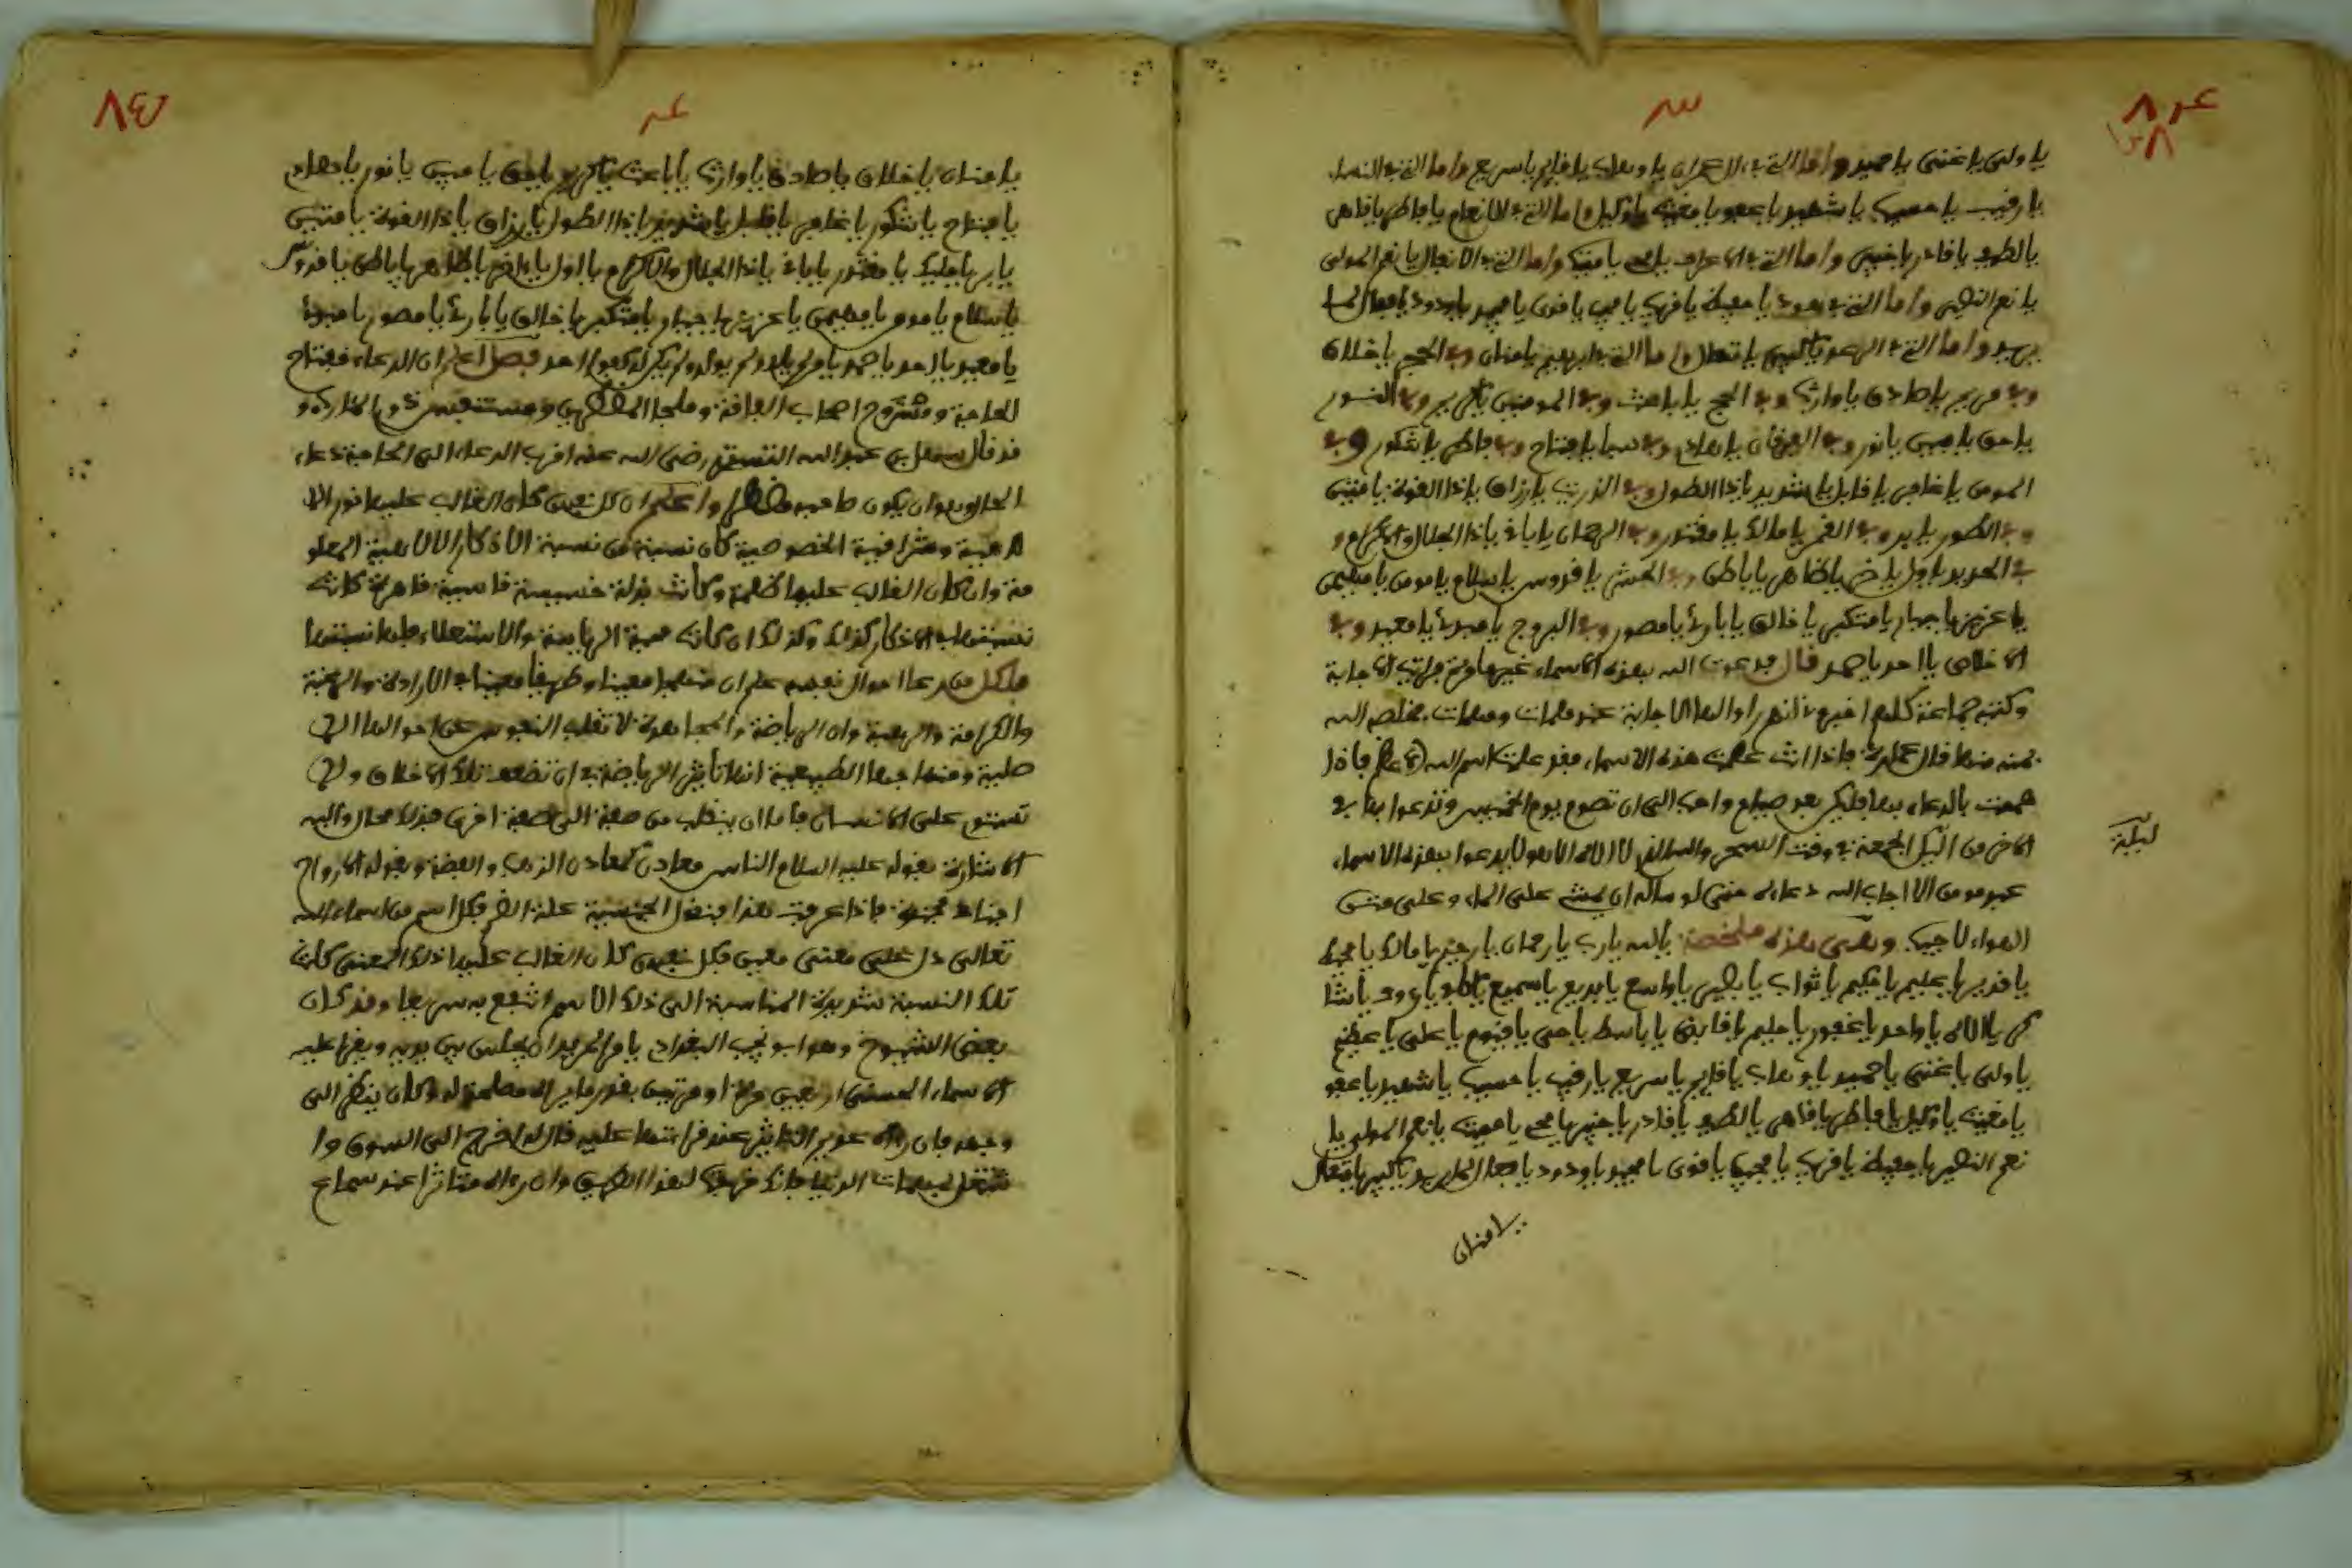 يا ولى يا غنى يا حميد واما التى في ال عمران يا وهاب يا قايم يا سريع واما التى في النساء
يا رقيب يا حسيب يا شهيد يا عفو يا مغيث يا وكيل واما التى في الانعام يا فاطر يا قاهر
يا لطيف يا قادر يا خبير واما التى في الاعراف يا محي يا مميت واما التى في الانفال يا نعم المولى
يا نعم النصير واما التى في هود يا حفيظ يا قريب يا مجيب يا قوى يا مجيد يا ودود يا فعال لما
يريد واما التى في الرعد يا كبير يا متعال واما التى في ابرهيم يا منان وفي الحجر يا خلاق
وفي مريم يا صادق يا وارث وفي الحج يا باعث وفي المومنين يا كريم وفي النور
يا حق يا مبين يا نور وفي الفرقان يا هادى وفي سبا يا فتاح وفي فاطر يا شكور وفي
المومن يا غافر يا قابل يا شديد يا ذا الطول وفي الذريت يا رزاق يا ذا القوة يا متين
وفي الطور يا بر وفي القمر يا مالك يا مقتدر وفي الرحمان يا باقى يا ذا الجلال والاكرام و
في الحديد يا اول يا اخر يا ظاهر يا باطن وفي الحشر يا قدوس يا سلام يا مومن يا مهيمن
يا عزيز يا جبار يا متكبر يا خالق يا بارئ يا مصور وفي البروج يا مبدئ يا معيد وفي
الاخلاص يا احد يا صمد قال فدعوت الله بهذه الاسماء غير ما مرة فرايت الاجابة
وكتبه جماعة كلهم اخبرونى انهم راوا لها الاجابة عند ملمات ومهمات فخلصه الله
بمنه منها قال فاذا انت علمت هذه الاسماء فقد علمت اسم الله الاعظم فاذا
هممت بالدعاء بها فليكن بعد صيام واحب الى ان تصوم يوم الخميس وتدعوا بها في
الاخر من اليل الجمعة في وقت السحر والله الذى لا اله الا هو لا يدعوا بهذه الاسماء
ليلة
عبد مومن الا اجاب الله دعاءه حتى لو ساله ان يمشى على الماء وعلى متن
الهواء لاجيب وهى هذه ملخصة يا الله يا رب يا رحمان يا رحيم يا مالك يا محيط
يا قدير يا عليم يا حكيم يا تواب يا بصير يا واسع يا بديع يا سميع يا كاف يا رءوف يا شا
كر يا الاه يا واحد يا غفور يا حليم يا قابض يا باسط يا حى يا قيوم يا على يا عظيم
يا ولى يا غنى يا حميد يا وهاب يا قايم يا سريع يا رقيب يا حسيب يا شهيد يا عفو
يا مغيث يا وكيل يا فاطر يا قاهر يا لطيف يا قادر يا خبير يا محي يا مميت يا نعم المولى يا
نعم النصير يا حفيظ يا قريب يا مجيب يا قوى يا مجيد يا ودود يا فعال لما يريد يا كبير يا متعال
يا منان
يا منان يا خلاق يا صادق يا وارث يا باعث يا كريم يا حق يا مبين يا نور يا هادى
يا فتاح يا شكور يا غافر يا قابل يا شديد يا ذا الطول يا رزاق يا ذا القوة يا متين
يا بر يا مليك يا مقتدر يا باقى يا ذا الجلال والاكرام يا اول يا اخر يا ظاهر يا باطن يا قدوس
يا سلام يا مومن يا مهيمن يا عزيز يا جبار يا متكبر يا خالق يا بارئ يا مصور يا مبدئ
يا معيد يا احد يا صمد يا من لم يلد ولم يولد ولم يكن له كفوا احد فصل اعلم ان الدعاء مفتاح
الحاجة ومستروح اصحاب الفاقة وملجا المضطرين ومتنفس ذوى المئارب و
قد قال سهل بن عبد الله التسترى رضى الله عنه اقرب الدعاء الى الاجابة دعاء
الحال وهو ان يكون صاحبه مضطرا واعلم ان كل نفس كان الغالب عليها نور الا
لاهية وشرافية الخصوصية كان نسبة من نسبة الاذكار الالاهية المعلو
مة وان كان الغالب عليها ظلمة وكانت بذلة خسيسة قاسية قاهرة كانت
نسبتها في الاذكار كذلك وكذلك ان كانت محبة الرياسة والاستعلاء فلها نسبتها
فكل من رعا احوال نفسه علم ان منهجا معينا وطريقا معينا في الارادة والرغبة
والكرامة والرهبة وان الرياضة والمجاهدة لا تقلب النفوس عن احوالها الا
صلية ومنهاجها الطبيعية انما تاثير الرياضة في ان تضعف تلك الاخلاق ولا
تستولى على الانسان فاما ان ينقلب من صفة الى صفة اخرى فذلك محال واليه
الاشارة بقوله عليه السلام الناس معادن كمعادن الذهب والفضة وبقوله الارواح
اجناد مجندة فاذا عرفت هذا فنقول الجنسية علة الضم فكل اسم من اسماء الله
تعالى دل على معنى معين فكل نفس كان الغالب عليها ذلك المعنى كانت
تلك النسبة شديدة المناسبة الى ذلك الاسم انتفع به سريعا وقد كان
بعض الشيوخ وهو ابو نجيب البغدادى يامر المريد ان يجلس بين يديه ويقرا عليه
الاسماء الحسنى اربعين مرة او مرتين بقدر ما يراه مصلحة له وكان ينظر الى
وجهه فان راه عديم التاثير عند قراءتها عليه قال له اخرج الى السوق وا
شتغل بمهمات الدنيا فانك لهذا الطريق وان راه متاثرا عند سماع